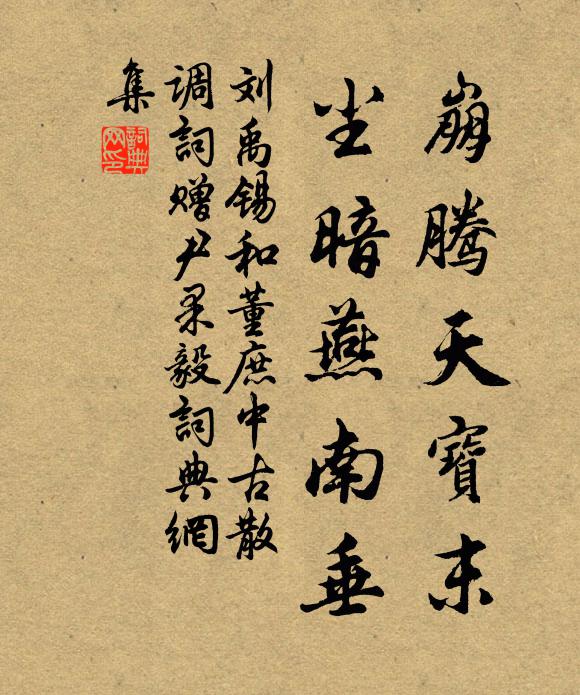 崩騰天寶末
尘暗燕南垂
刘禹锡和董庶中古散
调詞赠尹果毅詞典網
集
詞典
网印